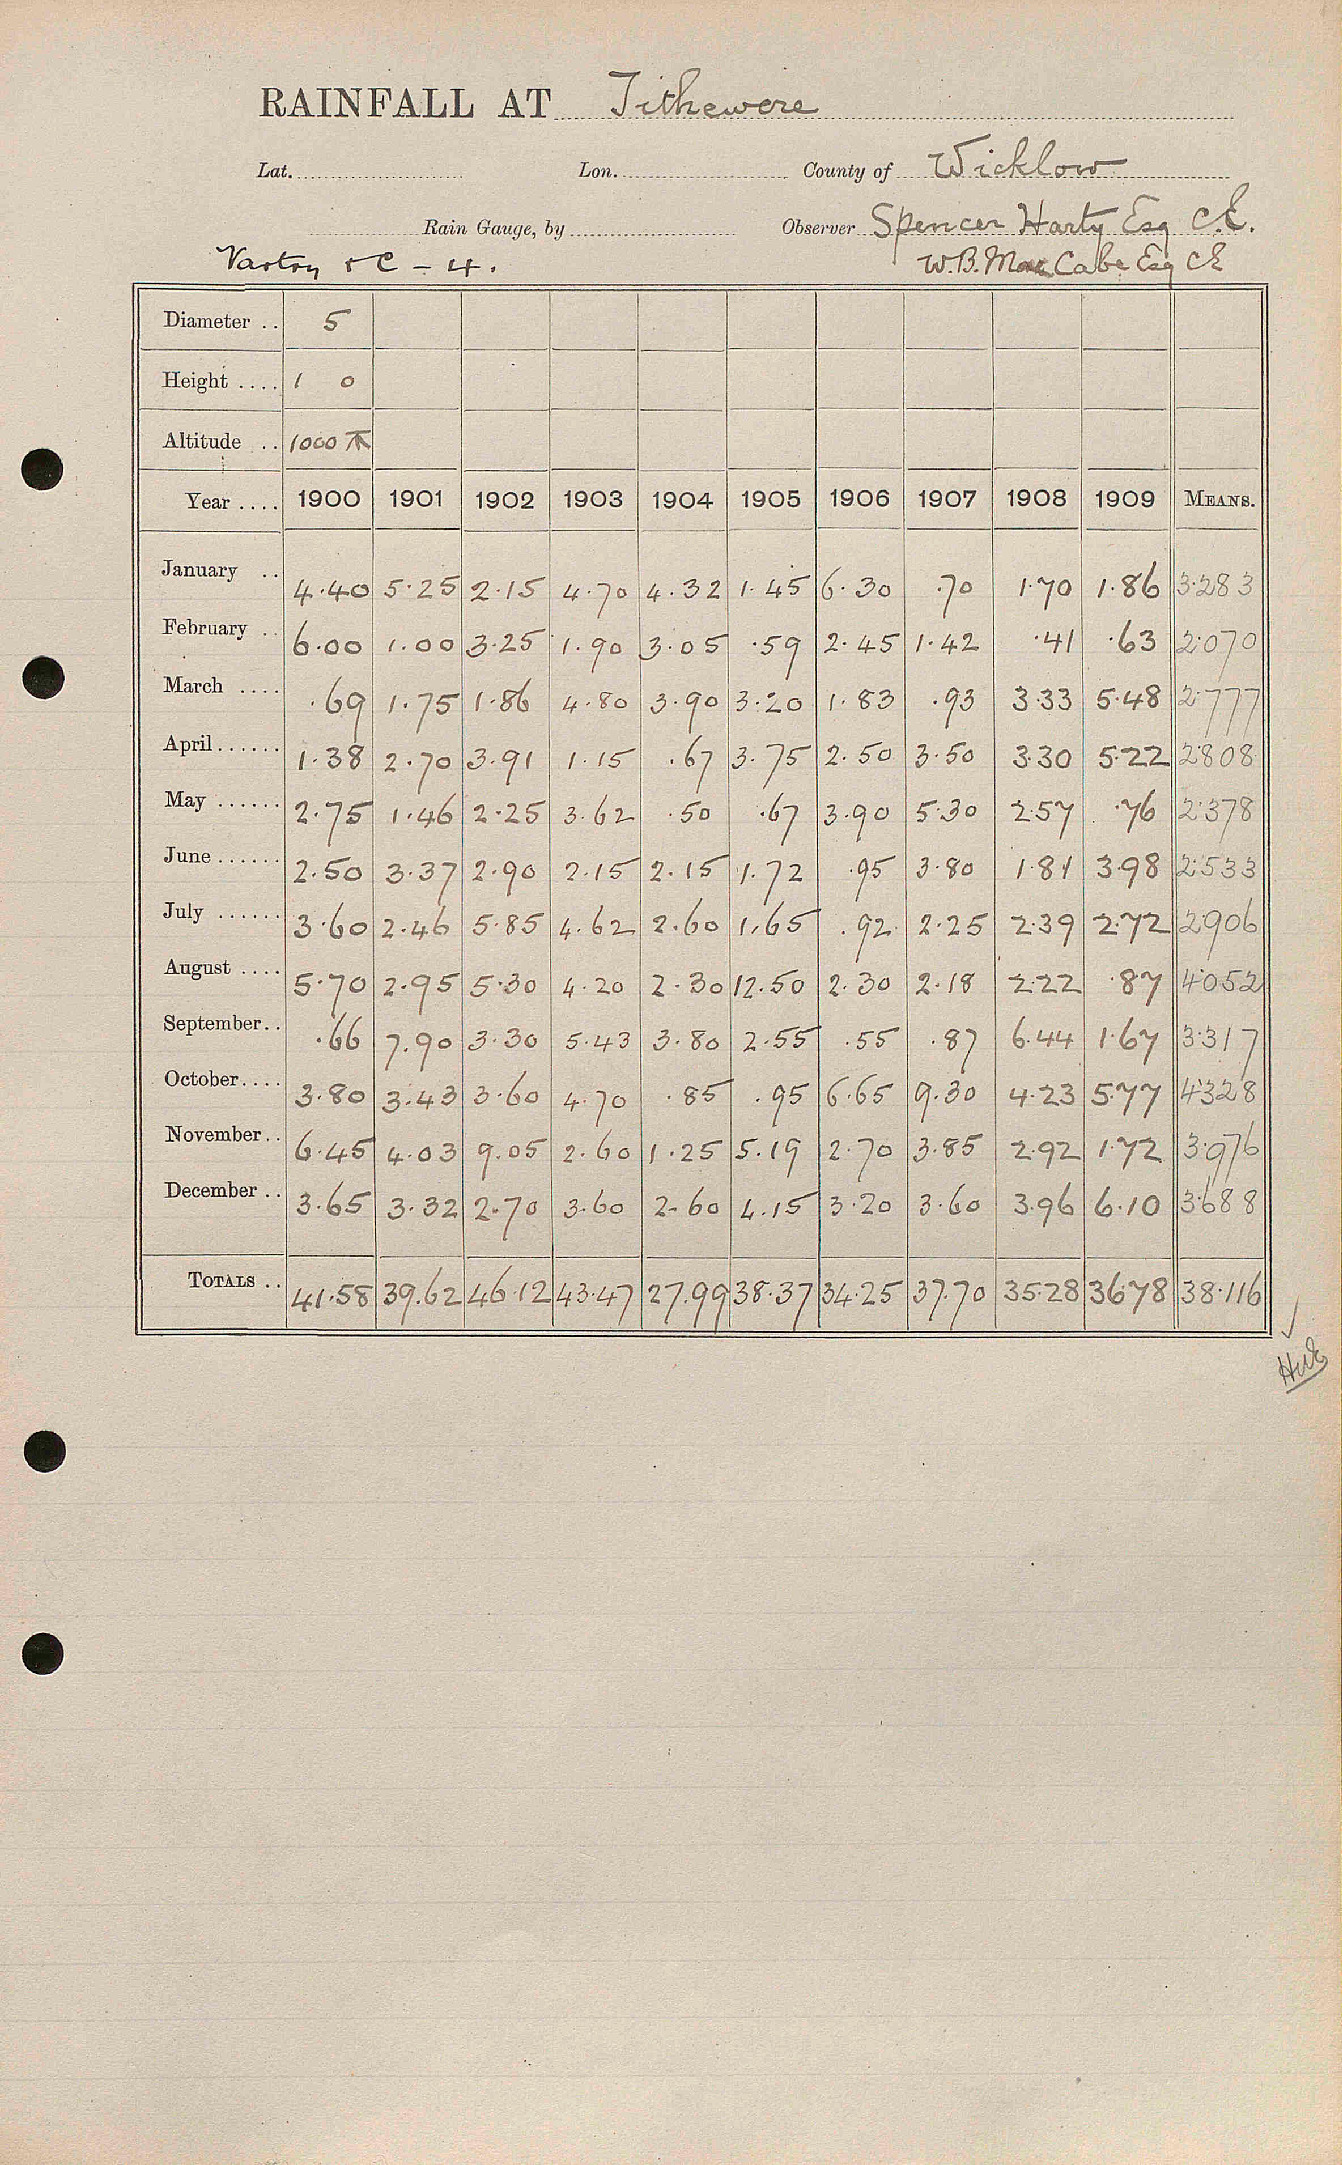 RAINFALL AT Tithewere
Lat. Lon. County of Wicklow
Rain Gauge, by Observer Spencer Harty Esq C.E.
Vartry & C - 4. W.B. MacCabe Esq CE
Diameter .. 5
Height .... 1 0
Altitude .. 1000
Year .... 1900 1901 1902 1903 1904 1905 1906 1907 1908 1909 MEANS.
January .. 4.40 5.25 2.15 4.70 4.32 1.45 6.30 .70 1.70 1.86 3.283
February .. 6.00 1.00 3.25 1.90 3.05 .59 2.45 1.42 .41 .63 2.070
March .... .69 1.75 1.86 4.80 3.90 3.20 1.83 .93 3.33 5.48 2.777
April...... 1.38 2.70 3.91 1.15 .67 3.75 2.50 3.50 3.30 5.22 2.808
May ...... 2.75 1.46 2.25 3.62 .50 .67 3.90 5.30 2.57 .76 2.378
June ...... 2.50 3.37 2.90 2.15 2.15 1.72 .95 3.80 1.81 3.98 2.533
July ...... 3.60 2.46 5.85 4.62 2.60 1.65 .92 2.25 2.39 2.72 2.906
August .... 5.70 2.95 5.30 4.20 2.30 12.50 2.30 2.18 2.22 .87 4.052
September.. .66 7.90 3.30 5.43 3.80 2.55 .55 .87 6.44 1.67 3.317
October.... 3.80 3.43 3.60 4.70 .85 .95 6.65 9.30 4.23 5.77 4.328
November.. 6.45 4.03 9.05 2.60 1.25 5.19 2.70 3.85 2.92 1.72 3.976
December .. 3.65 3.32 2.70 3.60 2.60 4.15 3.20 3.60 3.96 6.10 3.688
TOTALS .. 41.58 39.62 46.12 43.47 27.99 38.37 34.25 37.70 35.28 36.78 38.116